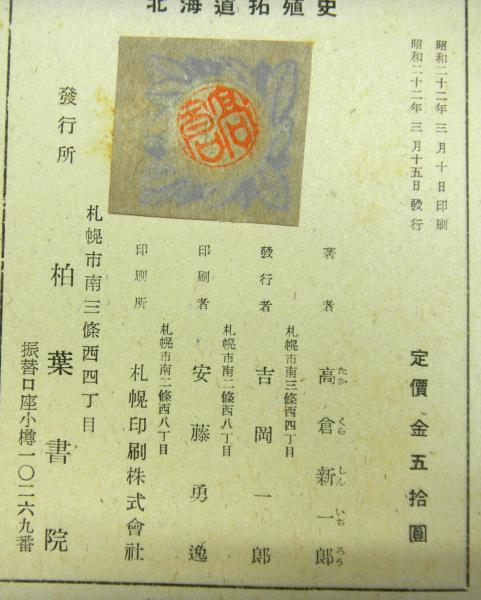 北海道拓殖史
昭和二十二年 三月十日印刷
昭和二十二年 三月十五日發行
定價金五拾圓
著者 高倉新一郎
たかくらしんいちろう
札幌市南三條西四丁目
發行者 吉岡一郎
札幌市南二條西八丁目
印刷者 安藤勇逸
札幌市南二條西八丁目
印刷所 札幌印刷株式會社
發行所
札幌市南三條西四丁目
柏葉書院
振替口座小樽一〇二六九番